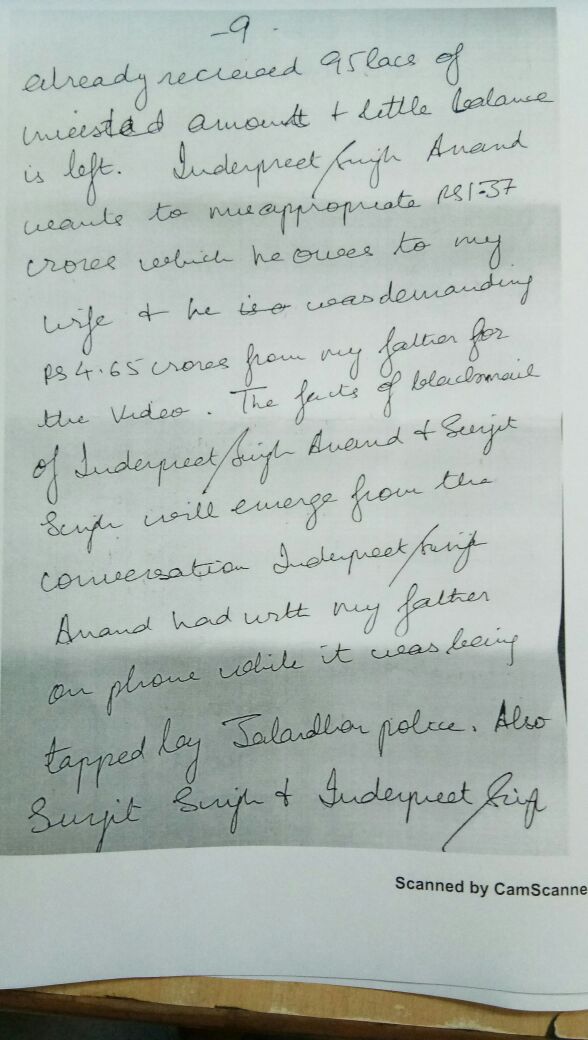 -9.
already recieved 95 lacs of
invested amount + little balance
is left. Inderpreet Singh Anand
wants to misappropriate RS 1.37
crores which he owes to my
wife + he is a was demanding
RS 4.65 crores from my father for
the Video. The facts of blackmail
of Inderpreet Singh Anand + Surjit
Singh will emerge from the
conversation Inderpreet Singh
Anand had with my father
on phone while it was being
tapped by Jalandhar police. Also
Surjit Singh + Inderpreet Singh
Scanned by CamScanne